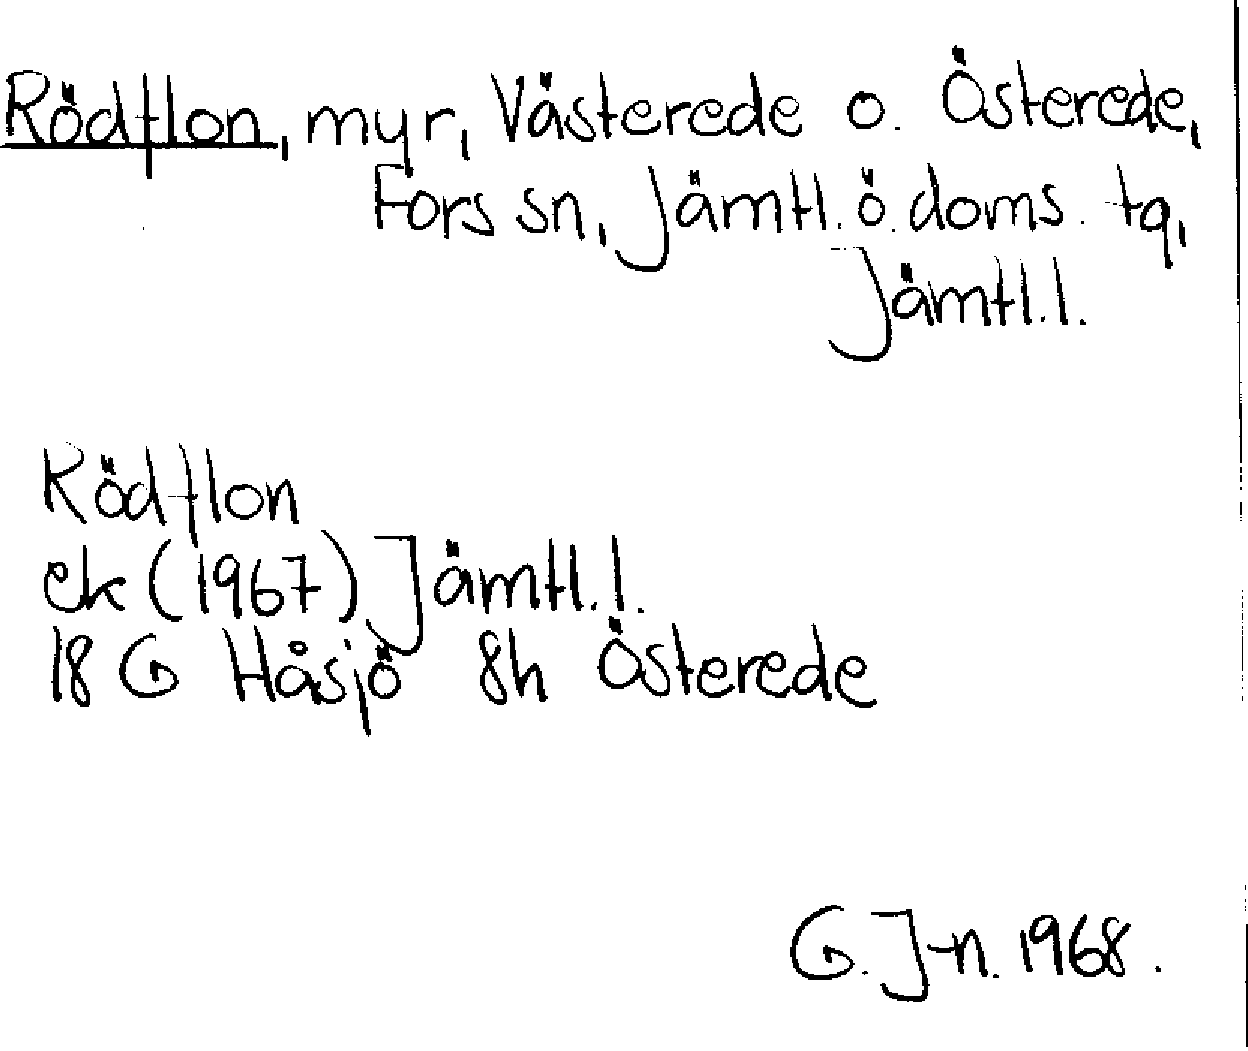 Rödflon, myr, Västerede o. Österede,
Fors sn, Jämtl. ö. doms. tg,
Jämtl. l.
Rödflon
ek (1967) Jämtl. l.
18 G Håsjö 8h Österede
G. J-n. 1968.